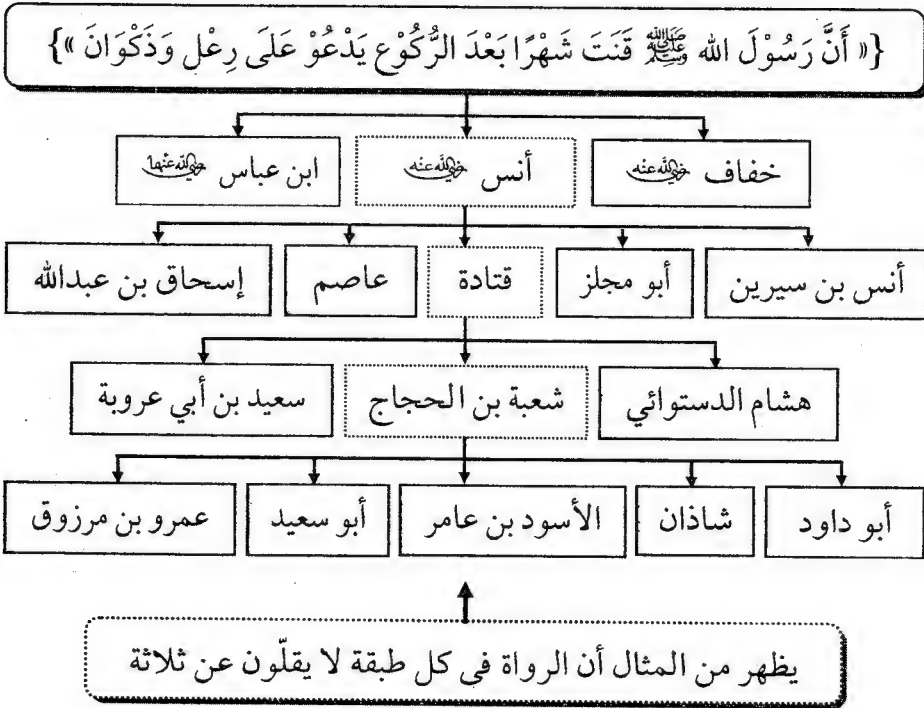 {« أَنَّ رَسُوْلَ الله ﷺ قَنَتَ شَهْرًا بَعْدَ الرُّكُوْعِ يَدْعُوْ عَلَى رِعْلٍ وَذَكْوَانَ »}
خفاف رضي الله عنه أنس رضي الله عنه ابن عباس رضي الله عنهما
أنس بن سيرين أبو مجلز قتادة عاصم إسحاق بن عبدالله
هشام الدستوائي شعبة بن الحجاج سعيد بن أبي عروبة
أبو داود شاذان الأسود بن عامر أبو سعيد عمرو بن مرزوق
يظهر من المثال أن الرواة في كل طبقة لا يقلّون عن ثلاثة